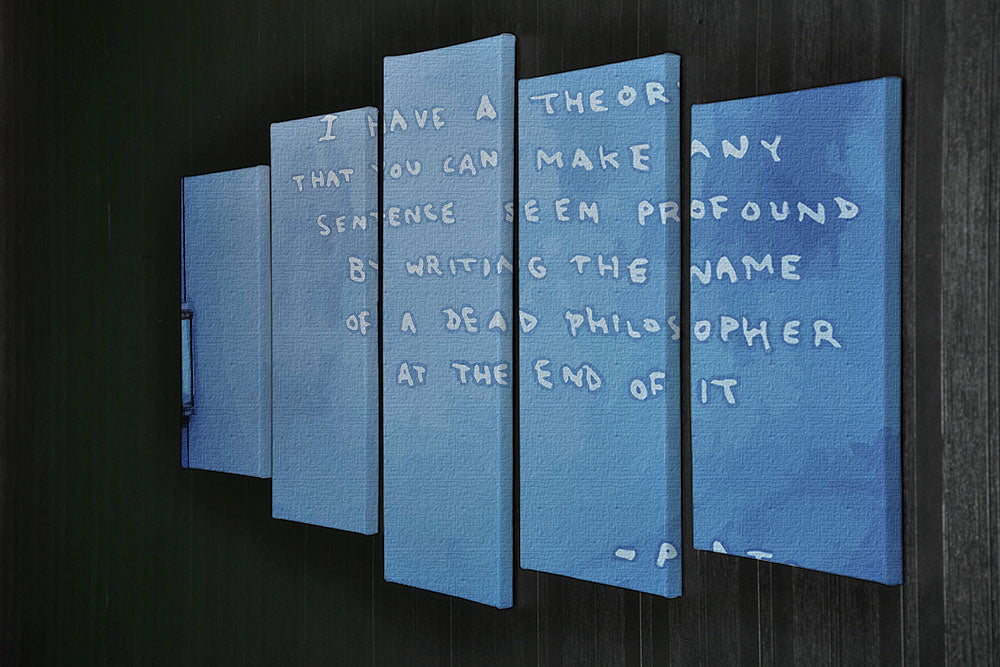 I HAVE A THEOR
THAT YOU CAN MAKE ANY
SENTENCE SEEM PROFOUND
BY WRITING THE NAME
OF A DEAD PHILOSOPHER
AT THE END OF IT